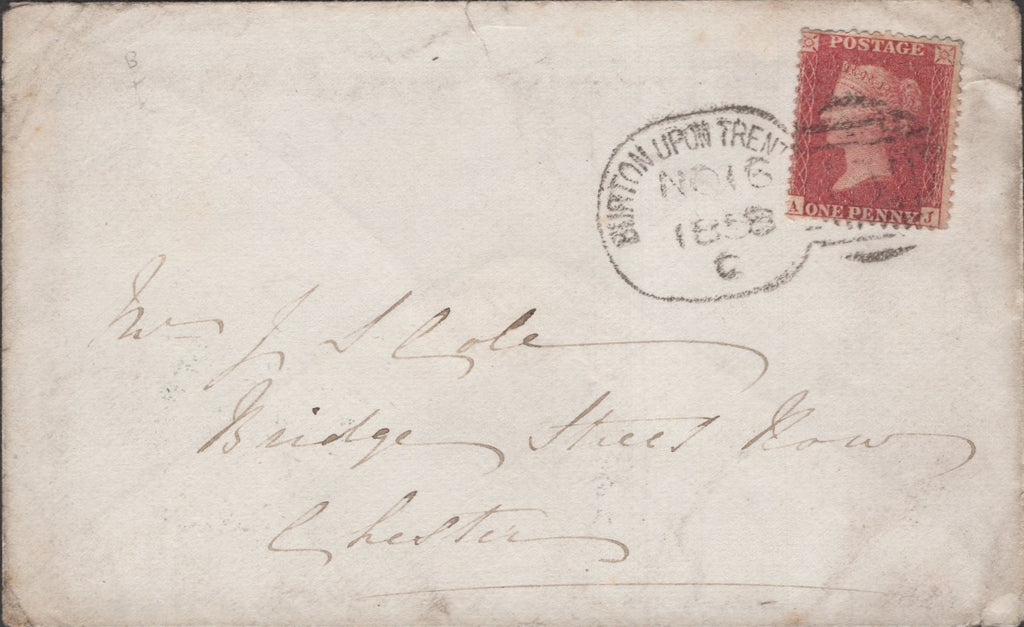 B
POSTAGE
A ONE PENNY J
BURTON UPON TRENT
NO 16
1858
C
Mr J S Cole
Bridge Street Row
Chester